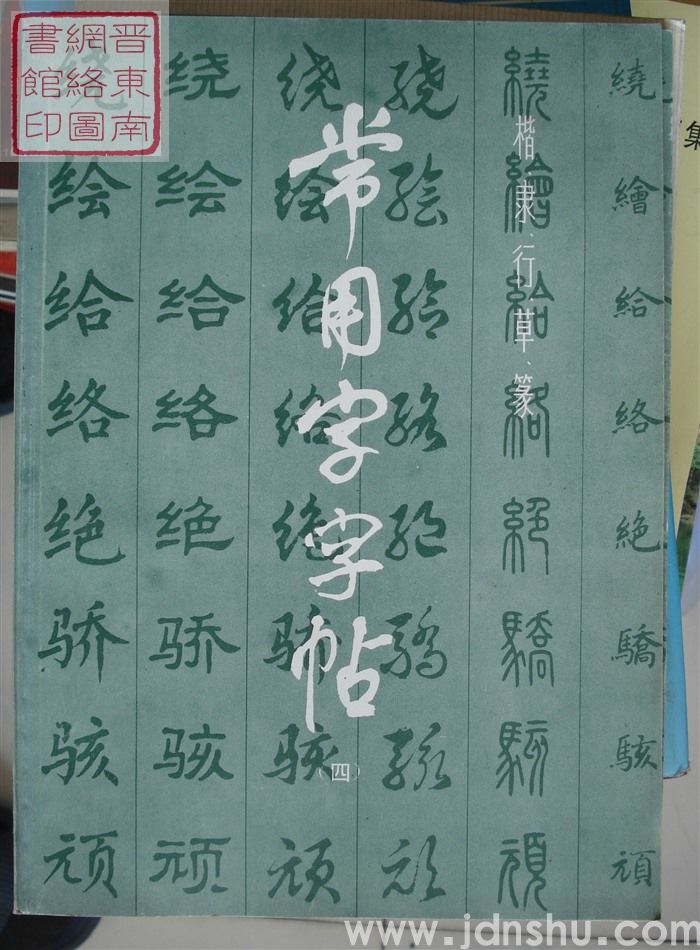 晋東南
網絡圖
書館印
常用字字帖
（四）
楷、隶、行、草、篆
绕绘给络绝骄骇顽
绕绘给络绝骄骇顽
绕绘给络绝骄骇顽
绕绘给络绝骄骇顽
繞繪給絡絕驕駭頑
繞繪給絡絶驕駭頑
集
www.jdnshu.com